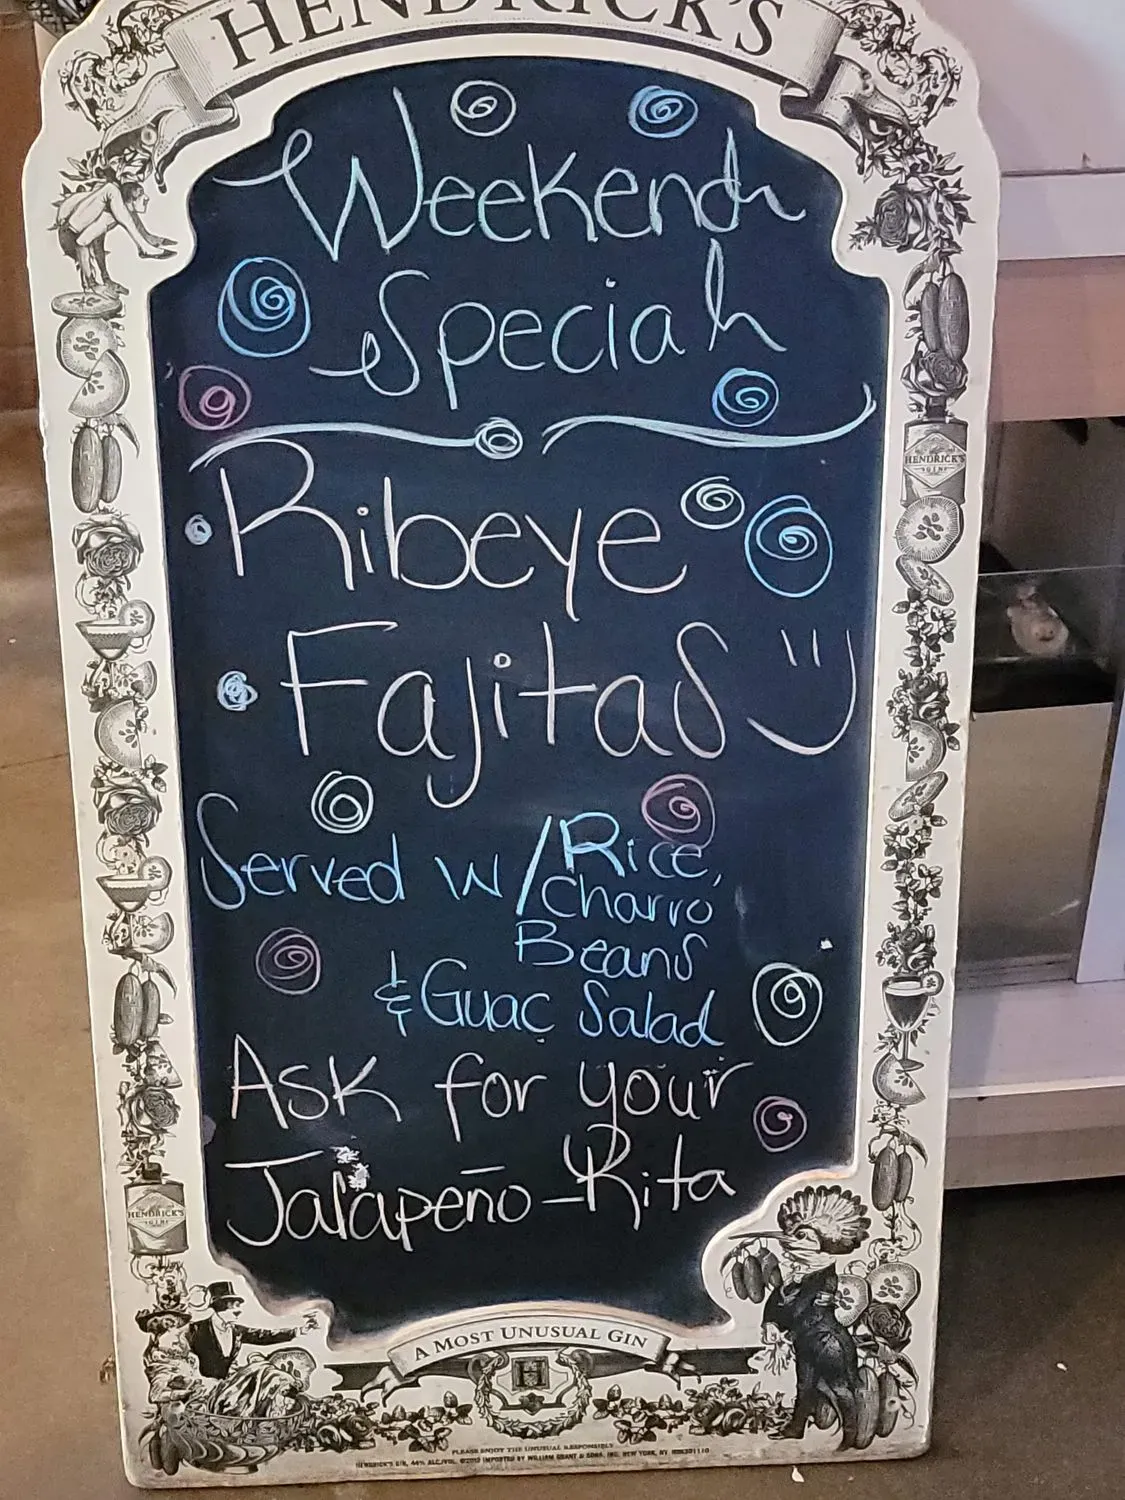 HENDRICK'S
Weekend
Special
Ribeye
Fajitas
Served w/Rice,
Charro
Beans
& Guac Salad
Ask for your
Jalapeño-Rita
HENDRICK'S
GIN
HENDRICK'S
GIN
A MOST UNUSUAL GIN
H
PLEASE ENJOY THE UNUSUAL RESPONSIBLY
HENDRICK'S GIN, 44% ALC./VOL. ©2010 IMPORTED BY WILLIAM GRANT & SONS, INC. NEW YORK, NY.